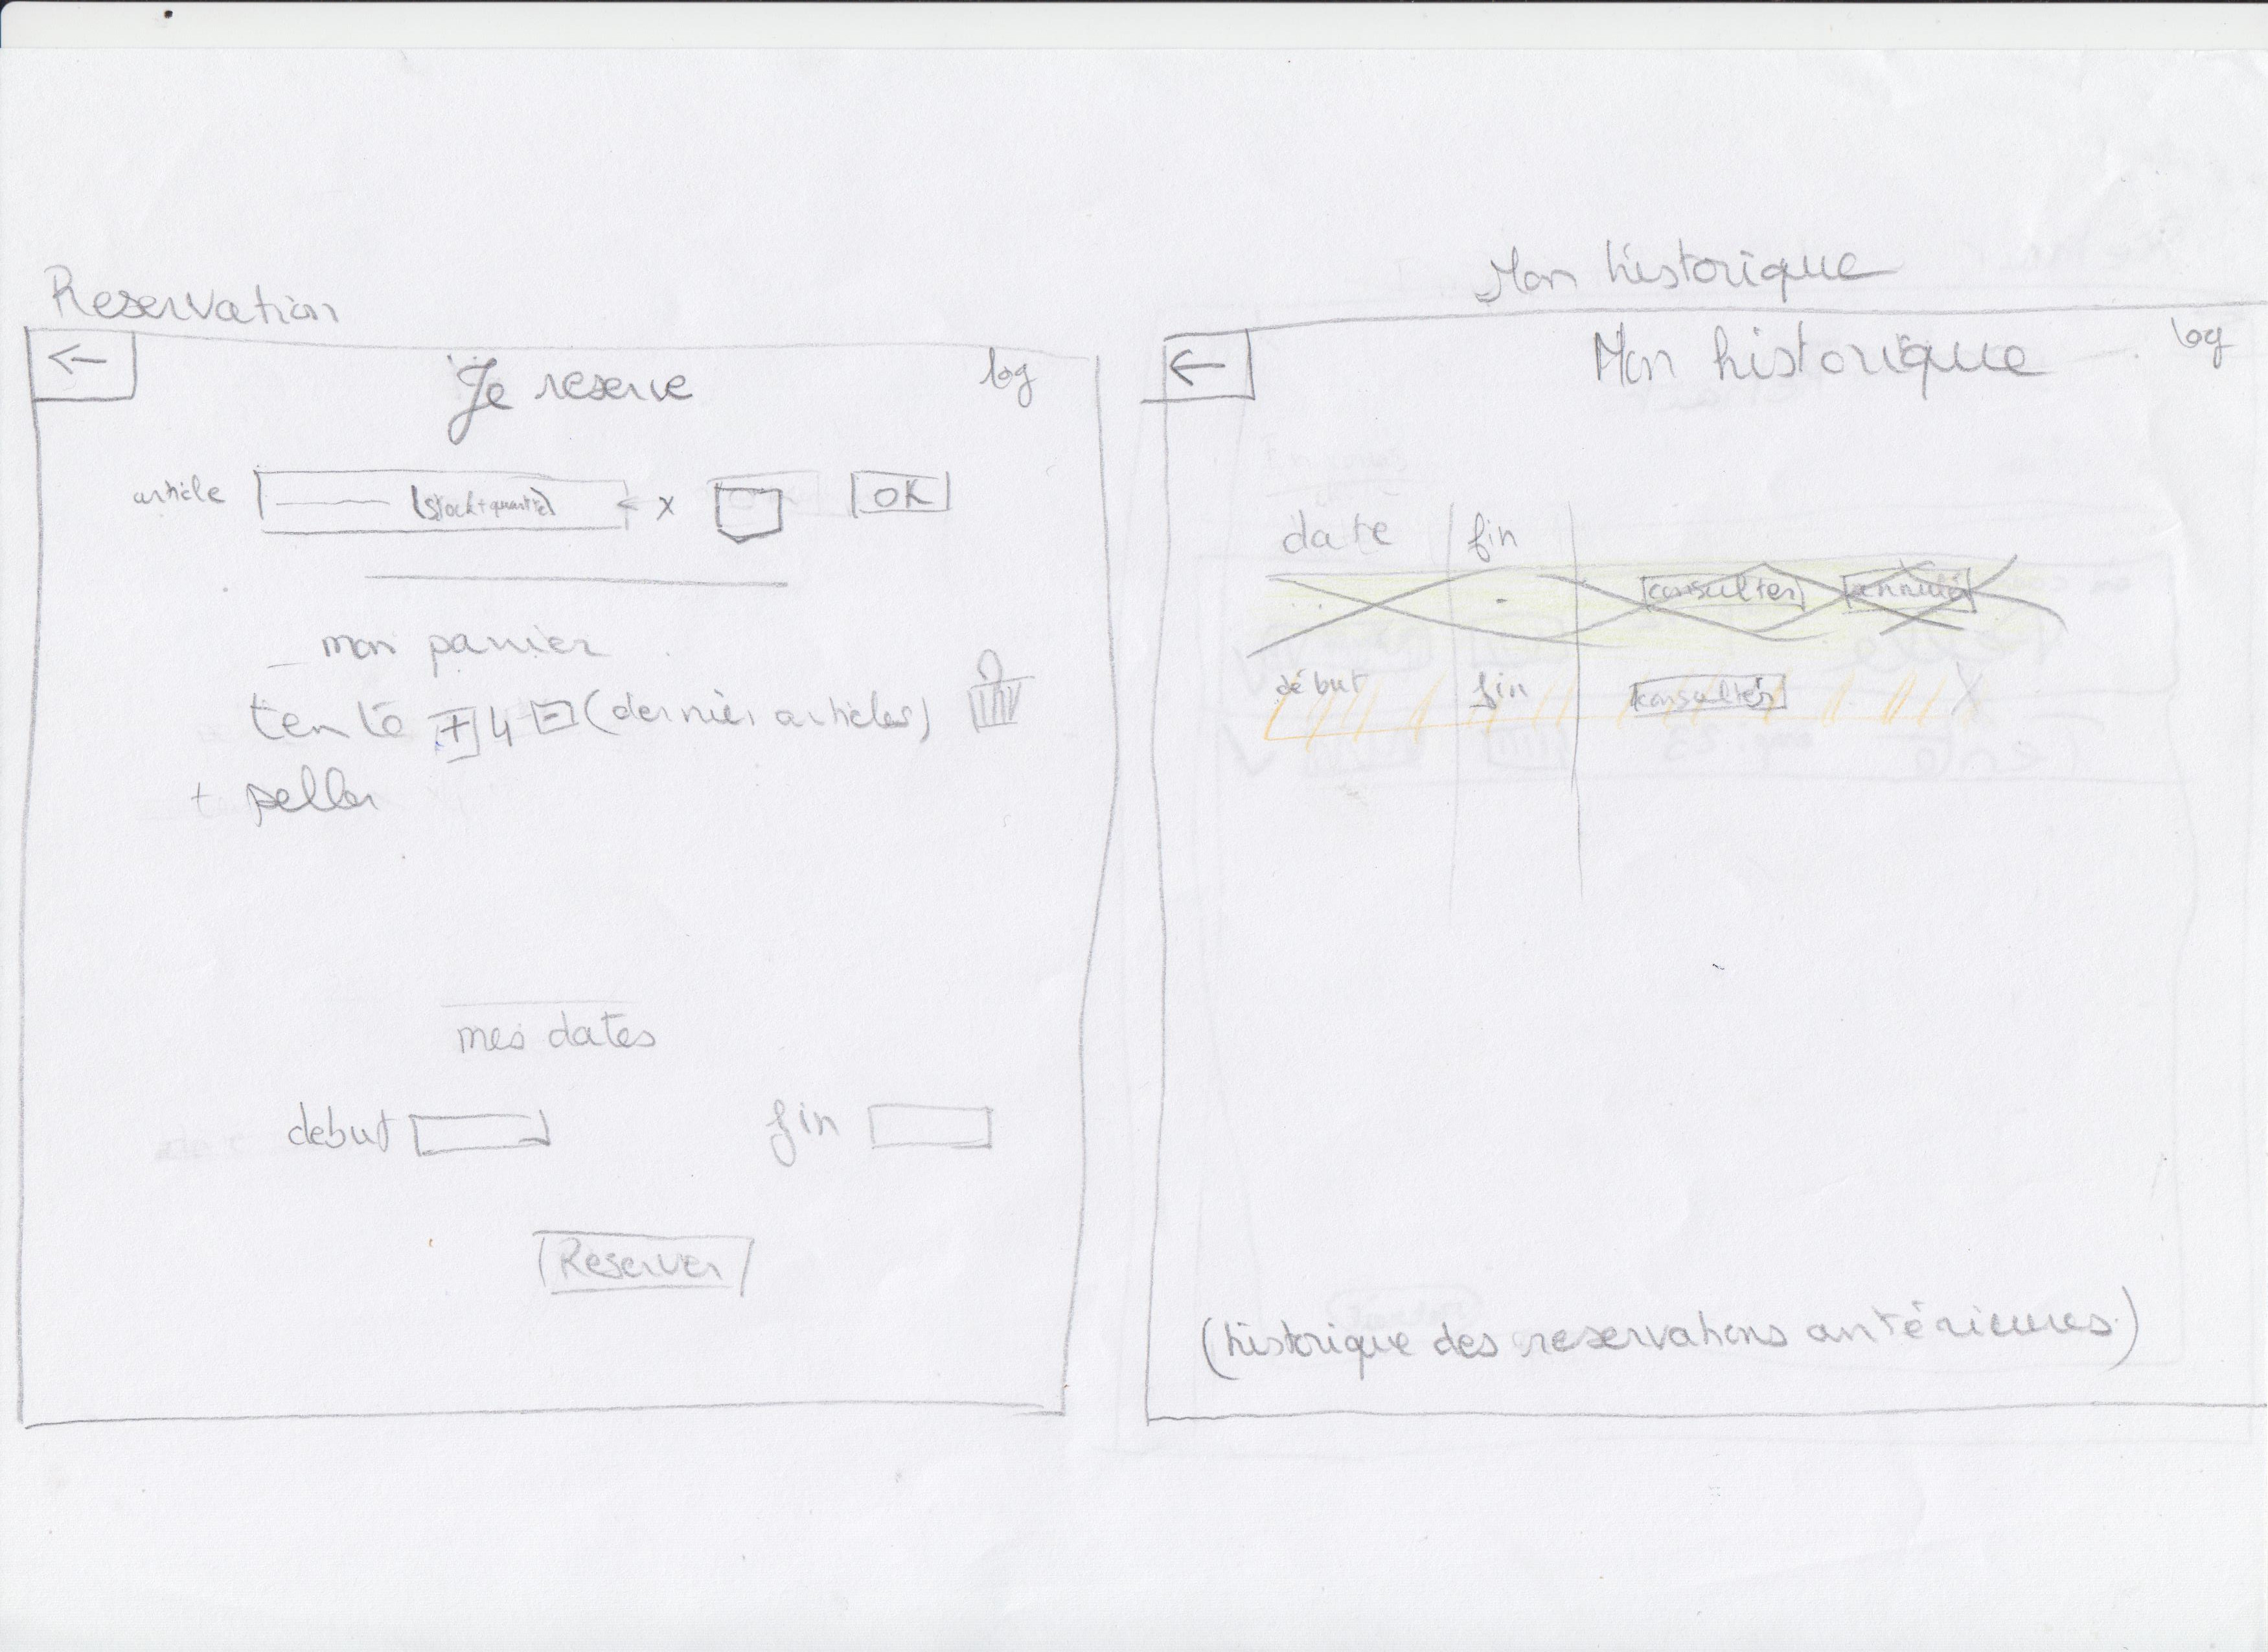 Reservation
←
Je reserve
log
article (stock+quantité) x OK
mon panier
tente + 4 - (dernier articles)
+ pelles
mes dates
debut fin
Reserver
Mon historique
←
Mon historique
log
date fin
consulter annuler
début fin consulter X
(historique des reservations antérieures)